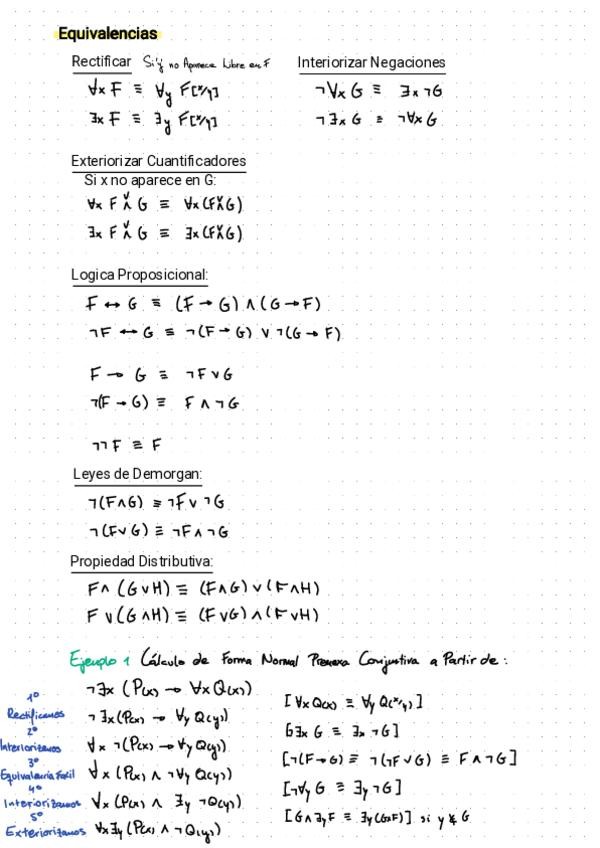 Equivalencias
Rectificar Si y no Aparece Libre en F
∀x F ≡ ∀y F[x/y]
∃x F ≡ ∃y F[x/y]
Interiorizar Negaciones
¬∀x G ≡ ∃x ¬G
¬∃x G ≡ ¬∀x G
Exteriorizar Cuantificadores
Si x no aparece en G:
∀x F ∨∧ G ≡ ∀x (F ∨∧ G)
∃x F ∨∧ G ≡ ∃x (F ∨∧ G)
Logica Proposicional:
F ↔ G ≡ (F → G) ∧ (G → F)
¬F ↔ G ≡ ¬(F → G) ∨ ¬(G → F)
F → G ≡ ¬F ∨ G
¬(F → G) ≡ F ∧ ¬G
¬¬F ≡ F
Leyes de Demorgan:
¬(F∧G) ≡ ¬F ∨ ¬G
¬(F∨G) ≡ ¬F ∧ ¬G
Propiedad Distributiva:
F ∧ (G∨H) ≡ (F∧G) ∨ (F∧H)
F ∨ (G∧H) ≡ (F∨G) ∧ (F∨H)
Ejemplo 1 Cálculo de Forma Normal Prenexa Conjuntiva a Partir de:
¬∃x (P(x) → ∀x Q(x))
1º Rectificamos
¬∃x (P(x) → ∀y Q(y)) [∀x Q(x) ≡ ∀y Q(x/y)]
2º Interiorizamos
∀x ¬(P(x) → ∀y Q(y)) [¬∃x G ≡ ∃x ¬G]
3º Equivalencia Fácil
∀x (P(x) ∧ ¬∀y Q(y)) [¬(F→G) ≡ ¬(¬F∨G) ≡ F∧¬G]
4º Interiorizamos
∀x (P(x) ∧ ∃y ¬Q(y)) [¬∀y G ≡ ∃y ¬G]
5º Exteriorizamos
∀x∃y (P(x) ∧ ¬Q(y)) [G∧∃yF ≡ ∃y(G∧F)] si y ∉ G